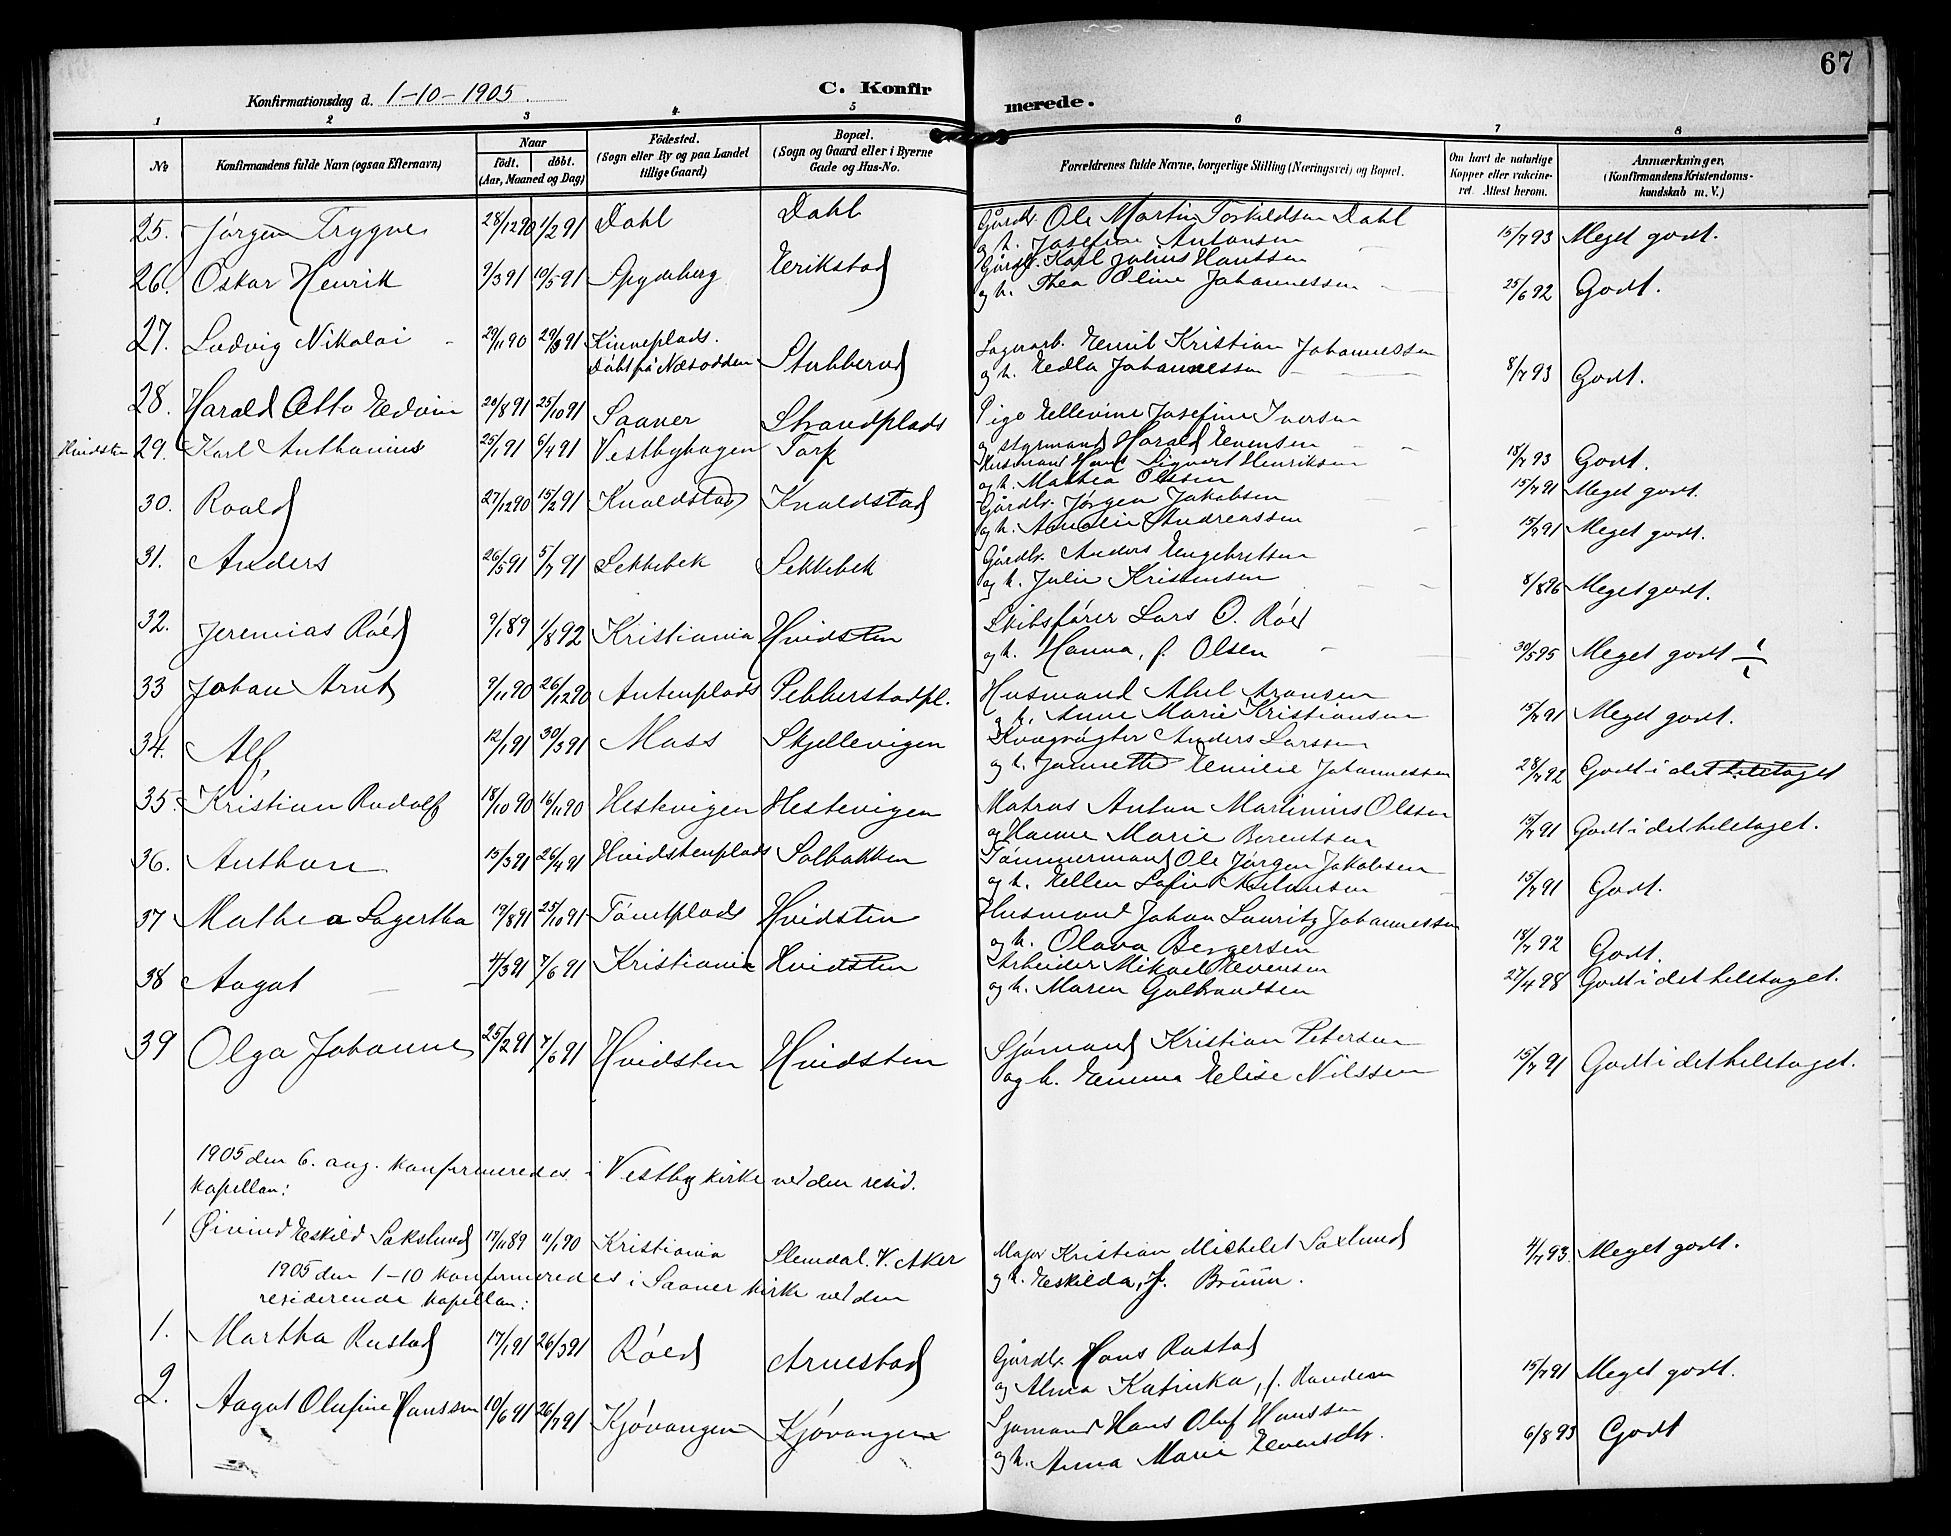 67
Konfirmationsdag d. 1-10-1905. C. Konfirmerede.
1 2 3 4 5 6 7 8
No Konfirmandens fulde Navn (ogsaa Efternavn) Naar født. døbt. (Aar, Maaned og Dag) Fødested. (Sogn eller By og paa Landet tillige Gaard) Bopæl. (Sogn og Gaard eller i Byerne Gade og Hus-No. Forældrenes fulde Navne, borgerlige Stilling (Næringsvei) og Bopæl. Om havt de naturlige Kopper eller vakcineret. Attest herom. Anmærkninger. (Konfirmandens Kristendomskundskab m. V.)
25. Jørgen Trygve 28/12 90 1/2 91 Dahl Dahl Gårdbr. Ole Martin Torkildsen Dahl 15/7 93 Meget godt.
og h. Josefine Antonsen
26. Oskar Henrik 9/3 91 10/5 91 Spydeberg Erikstad Gårdbr. Karl Julius Hanssen 25/6 92 Godt.
og h. Thea Oline Johannessen
27. Ludvig Nikolai 29/11 90 29/3 91 Kinneplads. Døbt på Næsodden Stubberud Sagarb. Emil Kristian Johannessen 8/7 93 Godt.
og h. Edla Johannessen
28. Harald Otto Edvin 20/8 91 25/10 91 Saaner Strandplads Pige Ellevine Josefine Iversen
og styrmand Harald Evensen 15/7 93 Godt.
Hvidsten 29. Karl Anthonius 25/1 91 6/4 91 Vestbyhagen Torp Husmand Hans Sigvart Henriksen 15/7 91 Meget godt.
og h. Mathea Olssen
30. Roald 27/12 90 15/2 91 Knaldstad Knaldstad Gårdbr. Jørgen Jakobsen 15/7 91 Meget godt.
og h. Amalie Andreassen
31. Anders 26/5 91 5/7 91 Sekkebek Sekkebek Gårdbr. Anders Engebretsen 8/8 96 Meget godt.
og h. Julie Kristensen
32. Jeremias Røed 9/1 89 1/8 92 Kristiania Hvidsten Skibsfører Lars O. Røed 30/5 95 Meget godt
og h. Hanna, f. Olsen
33 Johan Arnt 9/11 90 26/12 90 Antenplads Pebberstadpl. Husmand Abel Aronsen 15/7 91 Meget godt.
og h. Anne Marie Kristiansen
34. Alf 12/1 91 30/3 91 Moss Skjellevigen Kvægrøgter Anders Larssen 28/7 92 Godt i det heletaget
og h. Jannette Emilie Johannessen
35. Kristian Rudolf 18/10 90 16/11 90 Hestevigen Hestevigen Matros Anton Martinius Olssen 15/7 91 Godt i det heletaget.
og Hanne Marie Berentsen
36. Anthon 15/3 91 26/4 91 Hvidstenplads Solbakken Tømmermand Ole Jørgen Jakobsen 15/7 91 Godt.
og h. Ellen Sofie
37 Mathea Lagertha 19/8 91 25/10 91 Hvidsten Husmand Johan Lauritz Johannessen 18/7 92 Godt.
og h. Olava Bergersen
38 Aagot 4/3 91 7/6 91 Kristiania Hvidsten Arbeider Mikael Evensen 27/4 98 Godt i det heletaget.
og h. Maren Gulbrandsen
39 Olga Johanne 25/2 91 7/6 91 Hvidsten Hvidsten Sjømand Kristian Petersen 15/7 91 Godt i det heletaget.
og h. Emma Elise Nilssen
1905 den 6. aug. konfirmeredes i Vestby kirke ved den resid.
kapellan:
1 Øivind Eskild Sakslund 17/11 89 11/1 90 Kristiania Slemdal. V. Aker Major Kristian Michelet Saxlund 4/7 93. Meget godt.
og h. Eskilda, f. Brüün.
1905 den 1-10 konfirmeredes i Saaner kirke ved den
residerende kapellan:
1. Martha Rustad 17/1 91 26/3 91 Røed Arnestad Gårdbr. Hans Rustad 15/7 91 Meget godt.
og Alma Katinka, f. Randem
2. Aagot Olufine Hanssen 10/6 91 26/7 91 Kjøvangen Kjøvangen Sjømand Hans Oluf Hanssen 6/8 93 Godt
og h. Anna Marie Evensdtr.